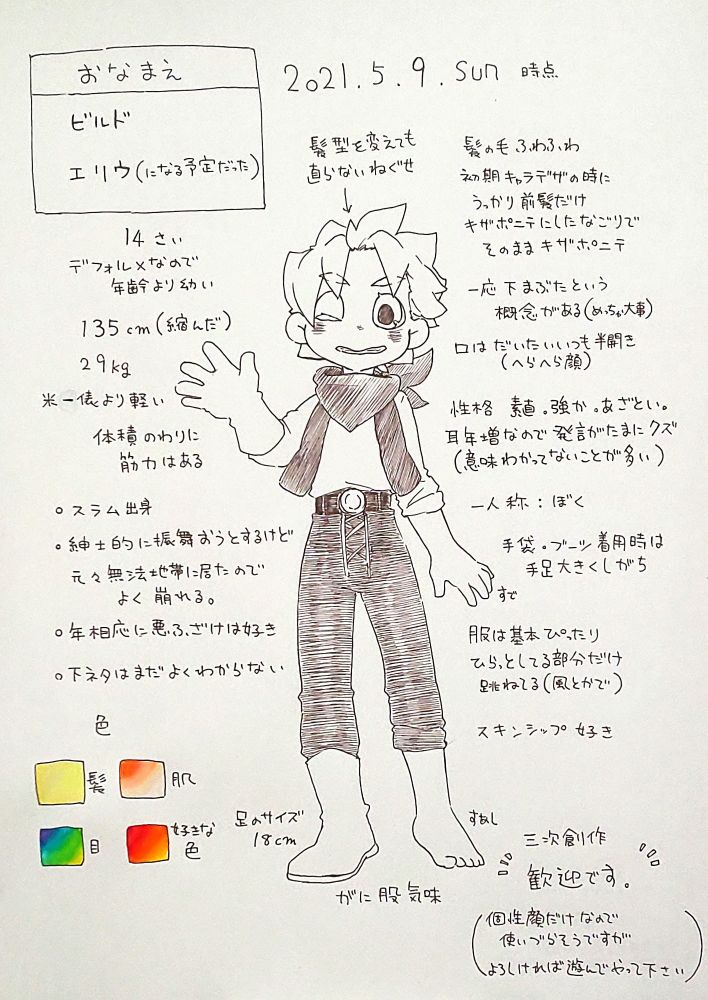 おなまえ
ビルド
エリウ(になる予定だった)
2021.5.9.sun 時点
髪型を変えても
直らないねぐせ
髪の毛 ふわふわ
初期キャラデザの時に
うっかり前髪だけ
キザポニテにしたなごりで
そのままキザポニテ
一応下まぶたという
概念がある(めっちゃ大事)
口はだいたいいつも半開き
(へらへら顔)
性格 素直。強か。あざとい。
耳年増なので発言がたまにクズ
(意味わかってないことが多い)
一人称:ぼく
手袋・ブーツ着用時は
手足大きくしがち
すで
服は基本ぴったり
ひらっとしてる部分だけ
跳ねてる(風とかで)
スキンシップ好き
14さい
デフォルメなので
年齢より幼い
135cm(縮んだ)
29kg
米一俵より軽い
体積のわりに
筋力はある
○スラム出身
○紳士的に振舞おうとするけど
元々無法地帯に居たので
よく崩れる。
○年相応に悪ふざけは好き
○下ネタはまだよくわからない
色
髪
肌
目
好きな
色
足のサイズ
18cm
すあし
がに股気味
三次創作
歓迎です。
(個性顔だけなので
使いづらそうですが
よろしければ遊んでやって下さい)